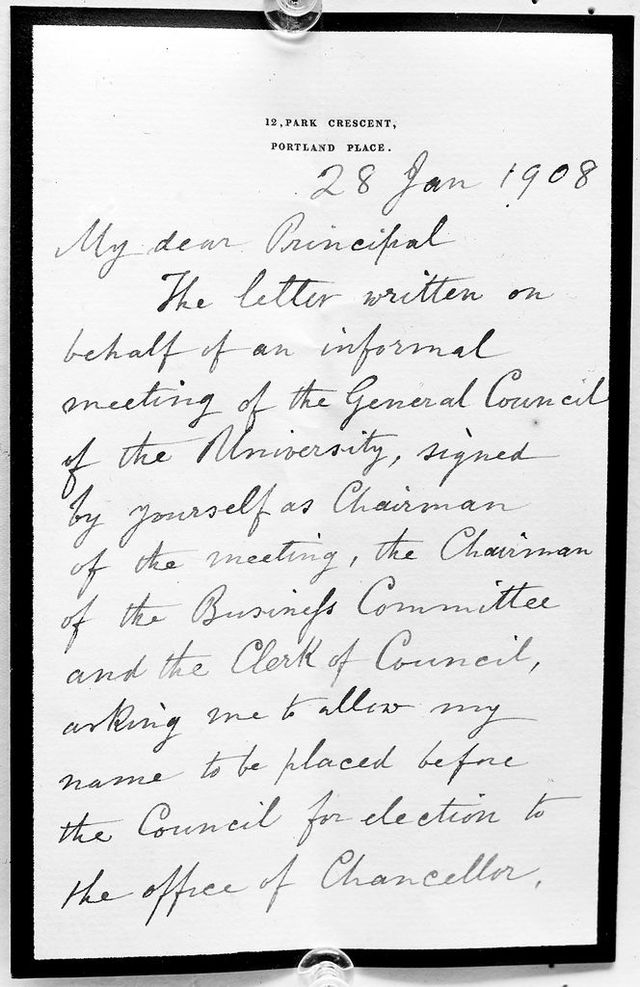 12, PARK CRESCENT,
PORTLAND PLACE.
28 Jan 1908
My dear Principal
The letter written on
behalf of an informal
meeting of the General Council
of the University, signed
by yourself as Chairman
of the meeting, the Chairman
of the Busineſs Committee
and the Clerk of Council,
asking me to allow my
name to be placed before
the Council for election to
the office of Chancellor,